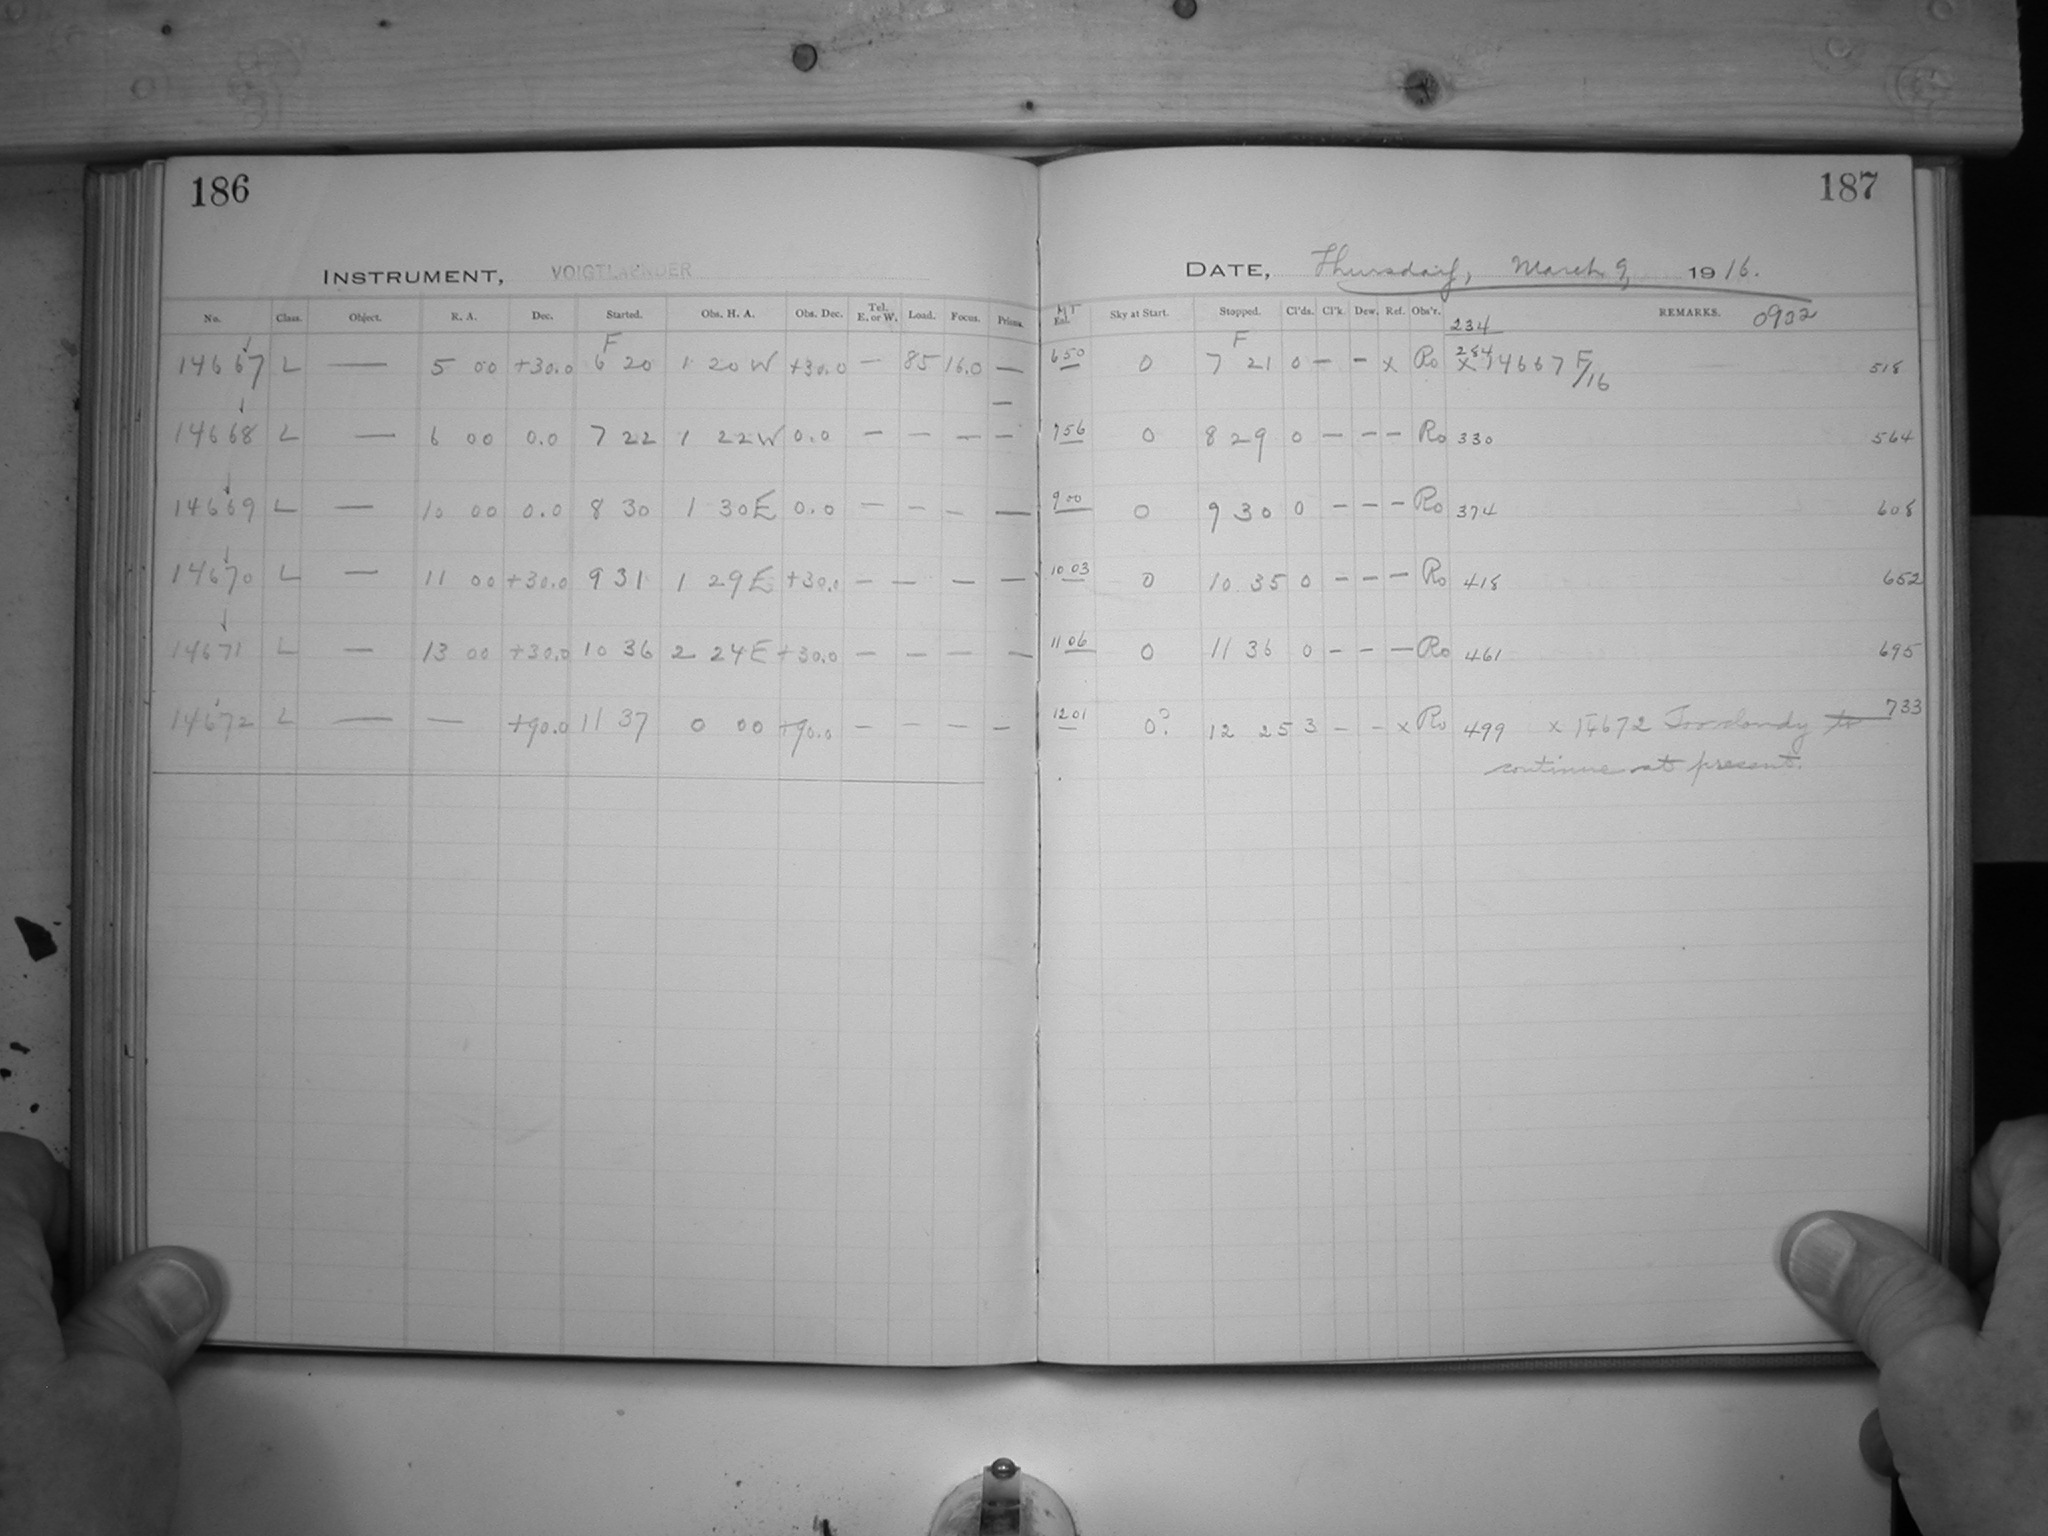 186
187
INSTRUMENT, VOIGTLAENDER
DATE, Thursday, March 9, 1916.
No. Class. Object. R. A. Dec. Started. Obs. H. A. Obs. Dec. Tel. E. or W. Load. Focus. Prism. MT Sky at Start. Stopped. Cl'ds. Cl'k. Dew. Ref. Obs'r. REMARKS. 0902
F F 234
14667 L — 5 00 +30.0 6 20 1 20 W +30.0 — 85 16.0 — 6 50 0 7 21 0 — — x Ro 284 x 14667 F/16 518
—
14668 L — 6 00 0.0 7 22 1 22 W 0.0 — — — — 7 56 0 8 29 0 — — — Ro 330 564
14669 L — 10 00 0.0 8 30 1 30 E 0.0 — — — — 9 00 0 9 30 0 — — — Ro 374 608
14670 L — 11 00 +30.0 9 31 1 29 E +30.0 — — — — 10 03 0 10 35 0 — — — Ro 418 652
14671 L — 13 00 +30.0 10 36 2 24 E +30.0 — — — — 11 06 0 11 36 0 — — — Ro 461 695
14672 L — — +90.0 11 37 0 00 +90.0 — — — — 12 01 0? 12 25 3 — — x Ro 499 x 14672 Too cloudy to 733
continue at present.